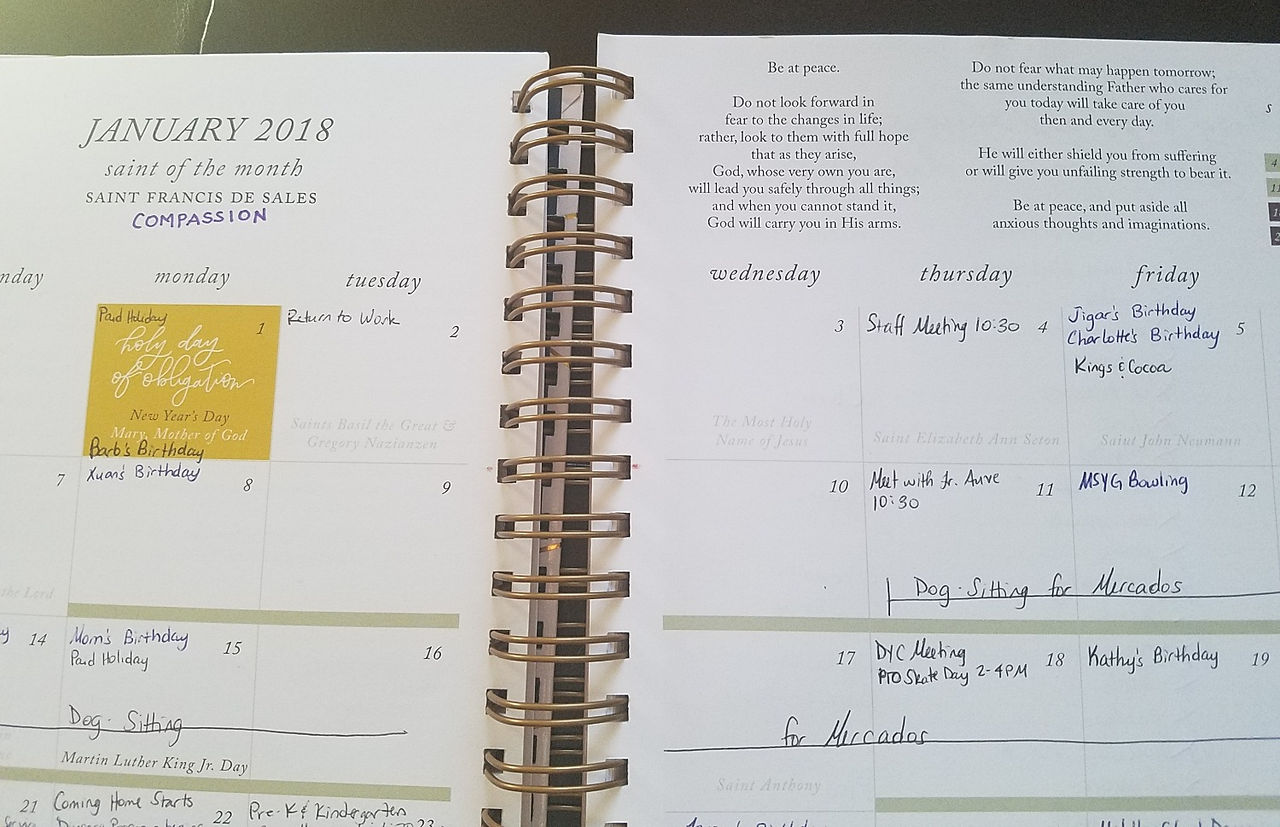 JANUARY 2018
saint of the month
SAINT FRANCIS DE SALES
COMPASSION
Be at peace.
Do not look forward in
fear to the changes in life;
rather, look to them with full hope
that as they arise,
God, whose very own you are,
will lead you safely through all things;
and when you cannot stand it,
God will carry you in His arms.
Do not fear what may happen tomorrow;
the same understanding Father who cares for
you today will take care of you
then and every day.
He will either shield you from suffering
or will give you unfailing strength to bear it.
Be at peace, and put aside all
anxious thoughts and imaginations.
S
4
11
nday
monday
tuesday
wednesday
thursday
friday
Paid Holiday
1
holy day
of obligation
New Year's Day
Mary, Mother of God
Barb's Birthday
Return to Work
2
Saints Basil the Great &
Gregory Nazianzen
3
The Most Holy
Name of Jesus
Staff Meeting 10:30
4
Saint Elizabeth Ann Seton
Jigar's Birthday
Charlotte's Birthday
5
Kings & Cocoa
Saint John Neumann
7
the Lord
Xuan's Birthday
8
9
10
Meet with Fr. Auve
10:30
11
MSYG Bowling
12
Dog-Sitting for Mercados
14
Mom's Birthday
15
Paid Holiday
Dog-Sitting
Martin Luther King Jr. Day
16
17
for Mercados
Saint Anthony
DYC Meeting
18
PTO Skate Day 2-4PM
Kathy's Birthday
19
21
Coming Home Starts
22
Pre-K & Kindergarten
23